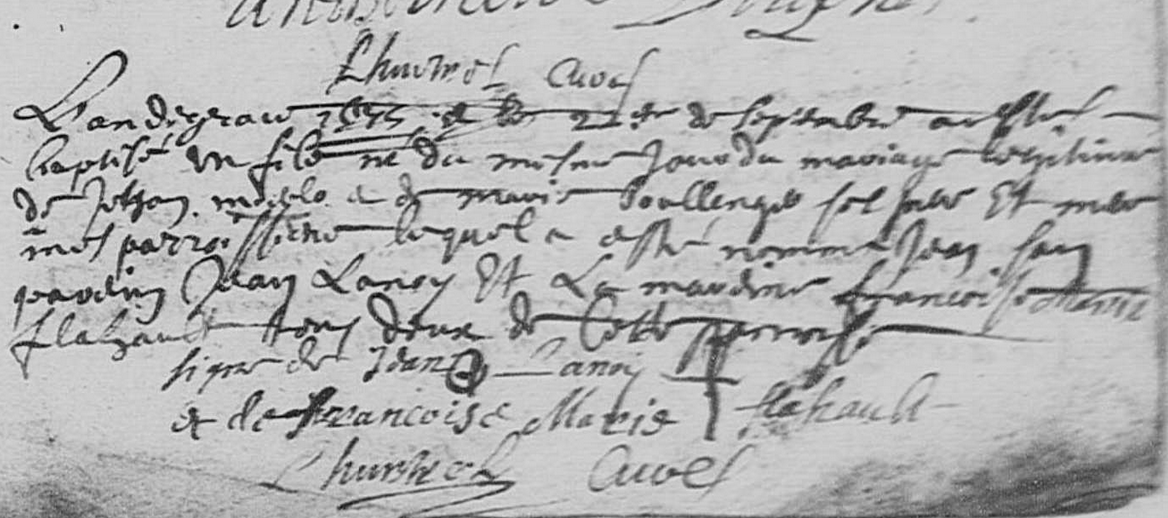 Lhurmel Curé
L'an de grace 1675 et le 22e de septembre a esté
baptisé un fils né du mesme jour du mariage legitime
de Jehan et de marie boullenger ses pere Et mere
mes parroissiens lequel a esté nommé Jean son
pardin Jean Lanoy Et La mardine francoise marie
flahault tous deux de Cette parroisse
signe de Jean Lanoy
et de francoise Marie flahault
Lhurmel Curé